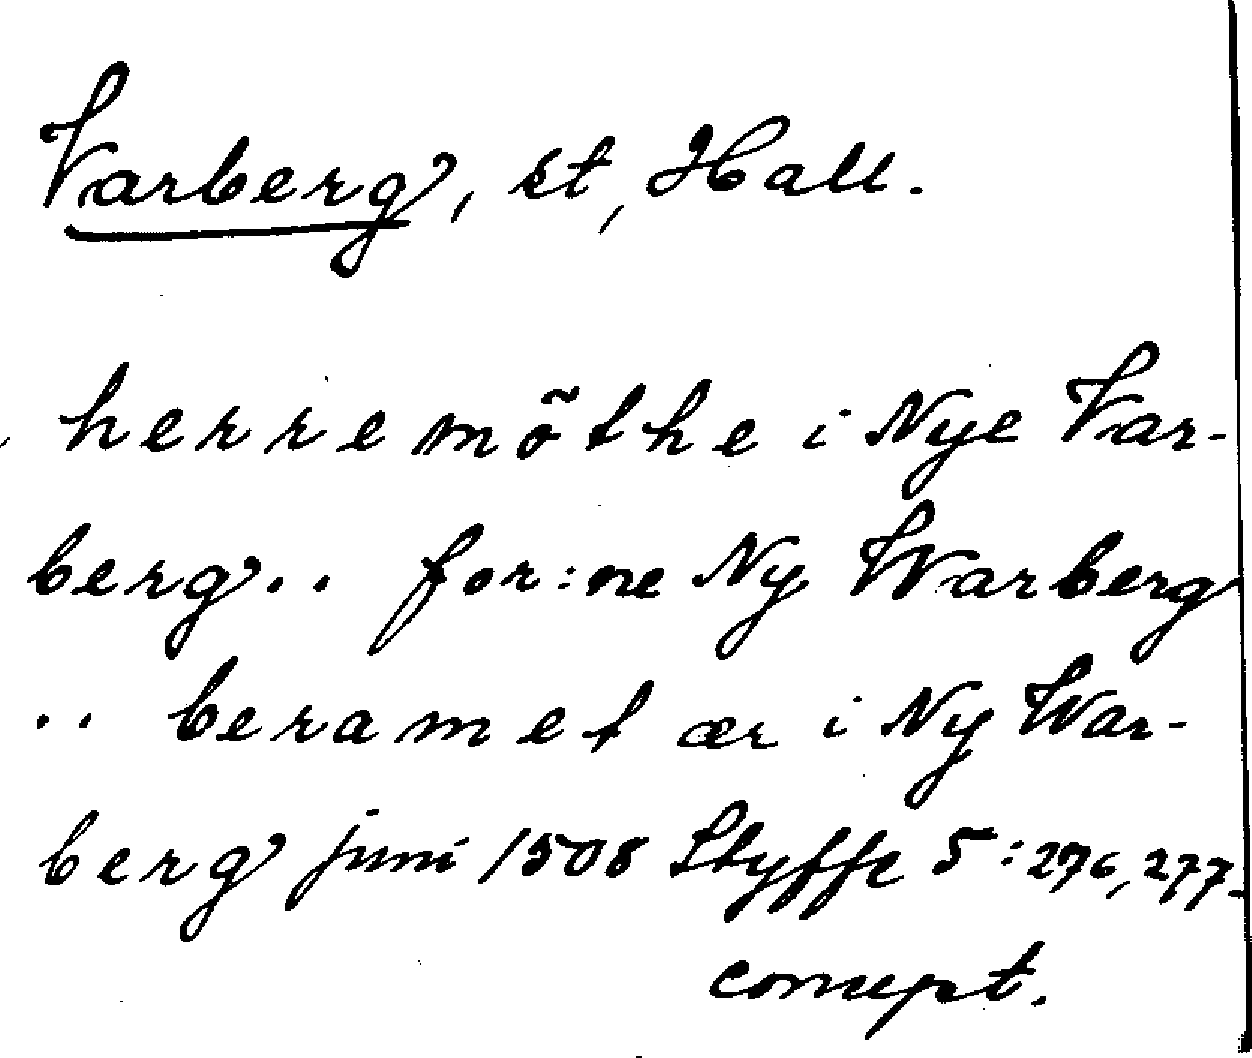 Varberg, st, Hall.
herremõthe i Nye Var-
berg.. for:ne Ny Warberg
.. beramet ær i Ny War-
berg juni 1508 Styffe 5:276, 277.
concept.